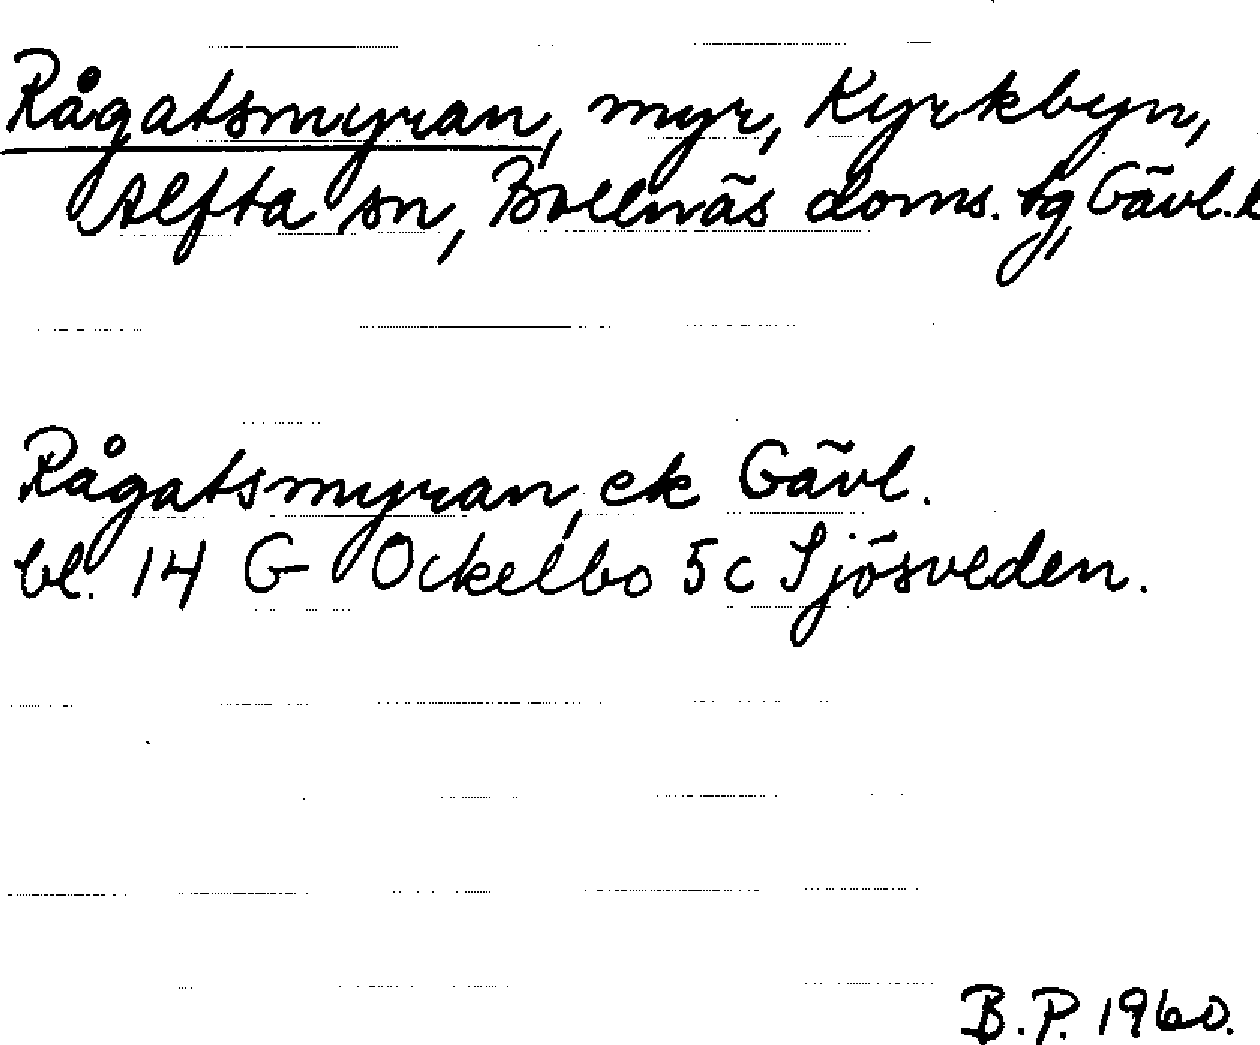 Rågatsmyran, myr, Kyrkbyn,
Alfta sn, Bollnäs doms. tg, Gävl. l
Rågatsmyran, ek Gävl.
bl. 14 G Ockelbo 5c Sjösveden.
B.P. 1960.